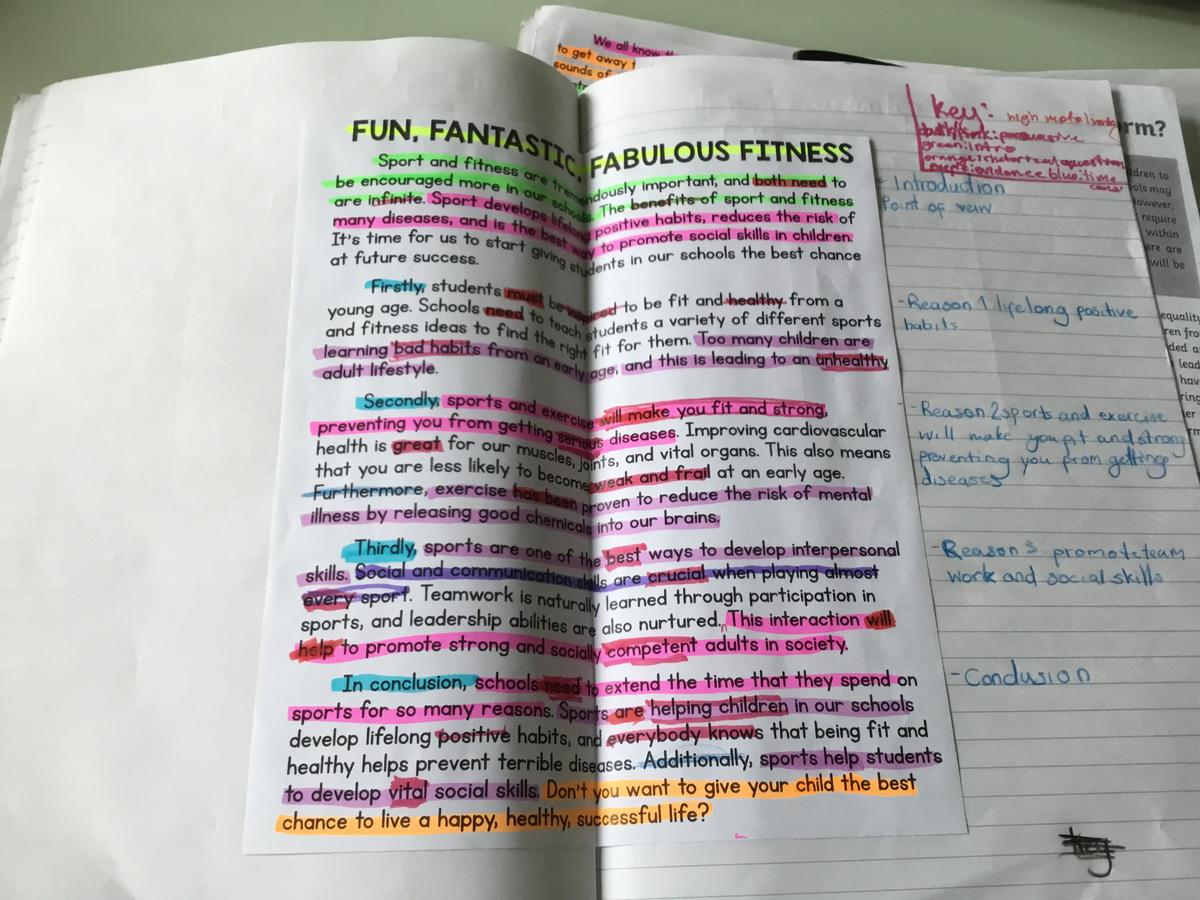 FUN, FANTASTIC, FABULOUS FITNESS
Sport and fitness are tremendously important, and both need to
be encouraged more in our schools. The benefits of sport and fitness
are infinite. Sport develops lifelong positive habits, reduces the risk of
many diseases, and is the best way to promote social skills in children.
It's time for us to start giving students in our schools the best chance
at future success.
Firstly, students must be inspired to be fit and healthy from a
young age. Schools need to teach students a variety of different sports
and fitness ideas to find the right fit for them. Too many children are
learning bad habits from an early age, and this is leading to an unhealthy
adult lifestyle.
Secondly, sports and exercise will make you fit and strong,
preventing you from getting serious diseases. Improving cardiovascular
health is great for our muscles, joints, and vital organs. This also means
that you are less likely to become weak and frail at an early age.
Furthermore, exercise has been proven to reduce the risk of mental
illness by releasing good chemicals into our brains.
Thirdly, sports are one of the best ways to develop interpersonal
skills. Social and communication skills are crucial when playing almost
every sport. Teamwork is naturally learned through participation in
sports, and leadership abilities are also nurtured. This interaction will
help to promote strong and socially competent adults in society.
In conclusion, schools need to extend the time that they spend on
sports for so many reasons. Sports are helping children in our schools
develop lifelong positive habits, and everybody knows that being fit and
healthy helps prevent terrible diseases. Additionally, sports help students
to develop vital social skills. Don't you want to give your child the best
chance to live a happy, healthy, successful life?
Key: high
green: intro
blue: time
Introduction
Point of veiw
- Reason 1 lifelong positive
habits
- Reason 2 sports and exercise
will make you fit and strong
preventing you from getting
diseases
- Reason 3 promote team
work and social skills
- Conclusion
We all know
to get away
sounds of
rm?
dren to
ols may
However,
require
within
ere are
will be
equality
ren fro
ded a
lead
hav
ring